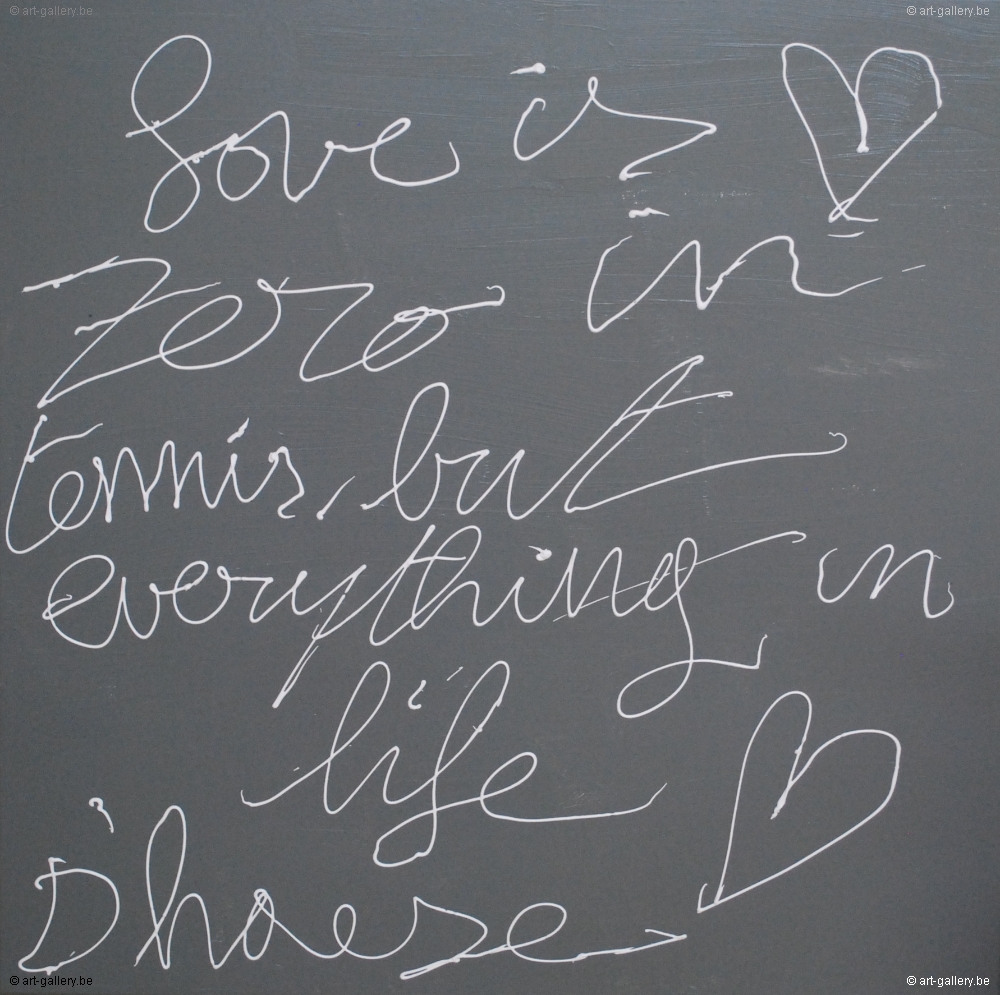 © art-gallery.be © art-gallery.be
Love is ♡
zero in
tennis, but
everything in
life ♡
D'haese
© art-gallery.be © art-gallery.be